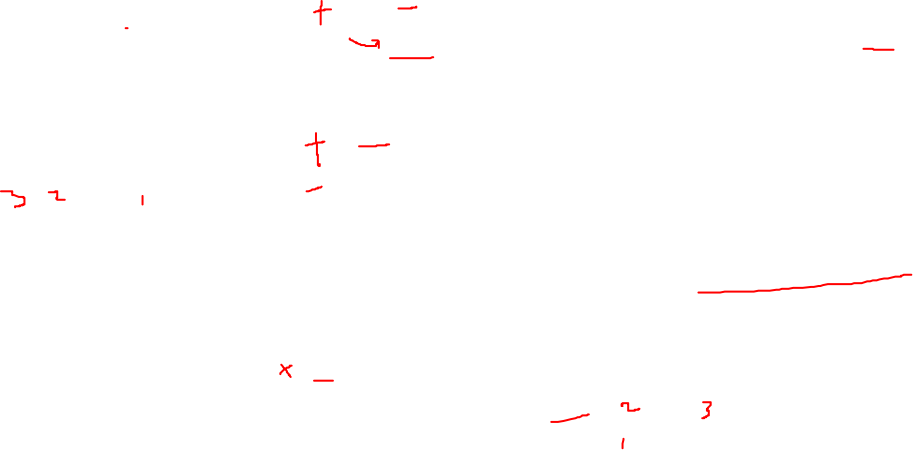 + −
+ −
−
3 2 1
x −
− 2 3
1